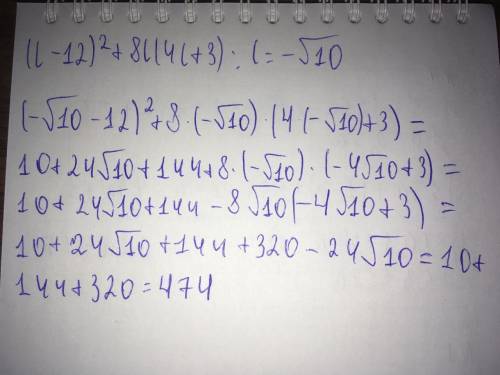 (l-12)²+8l(4l+3); l=-√10
(-√10-12)²+8·(-√10)·(4(-√10)+3)=
10+24√10+144+8·(-√10)·(-4√10+3)=
10+24√10+144-8√10(-4√10+3)=
10+24√10+144+320-24√10=10+
144+320=474